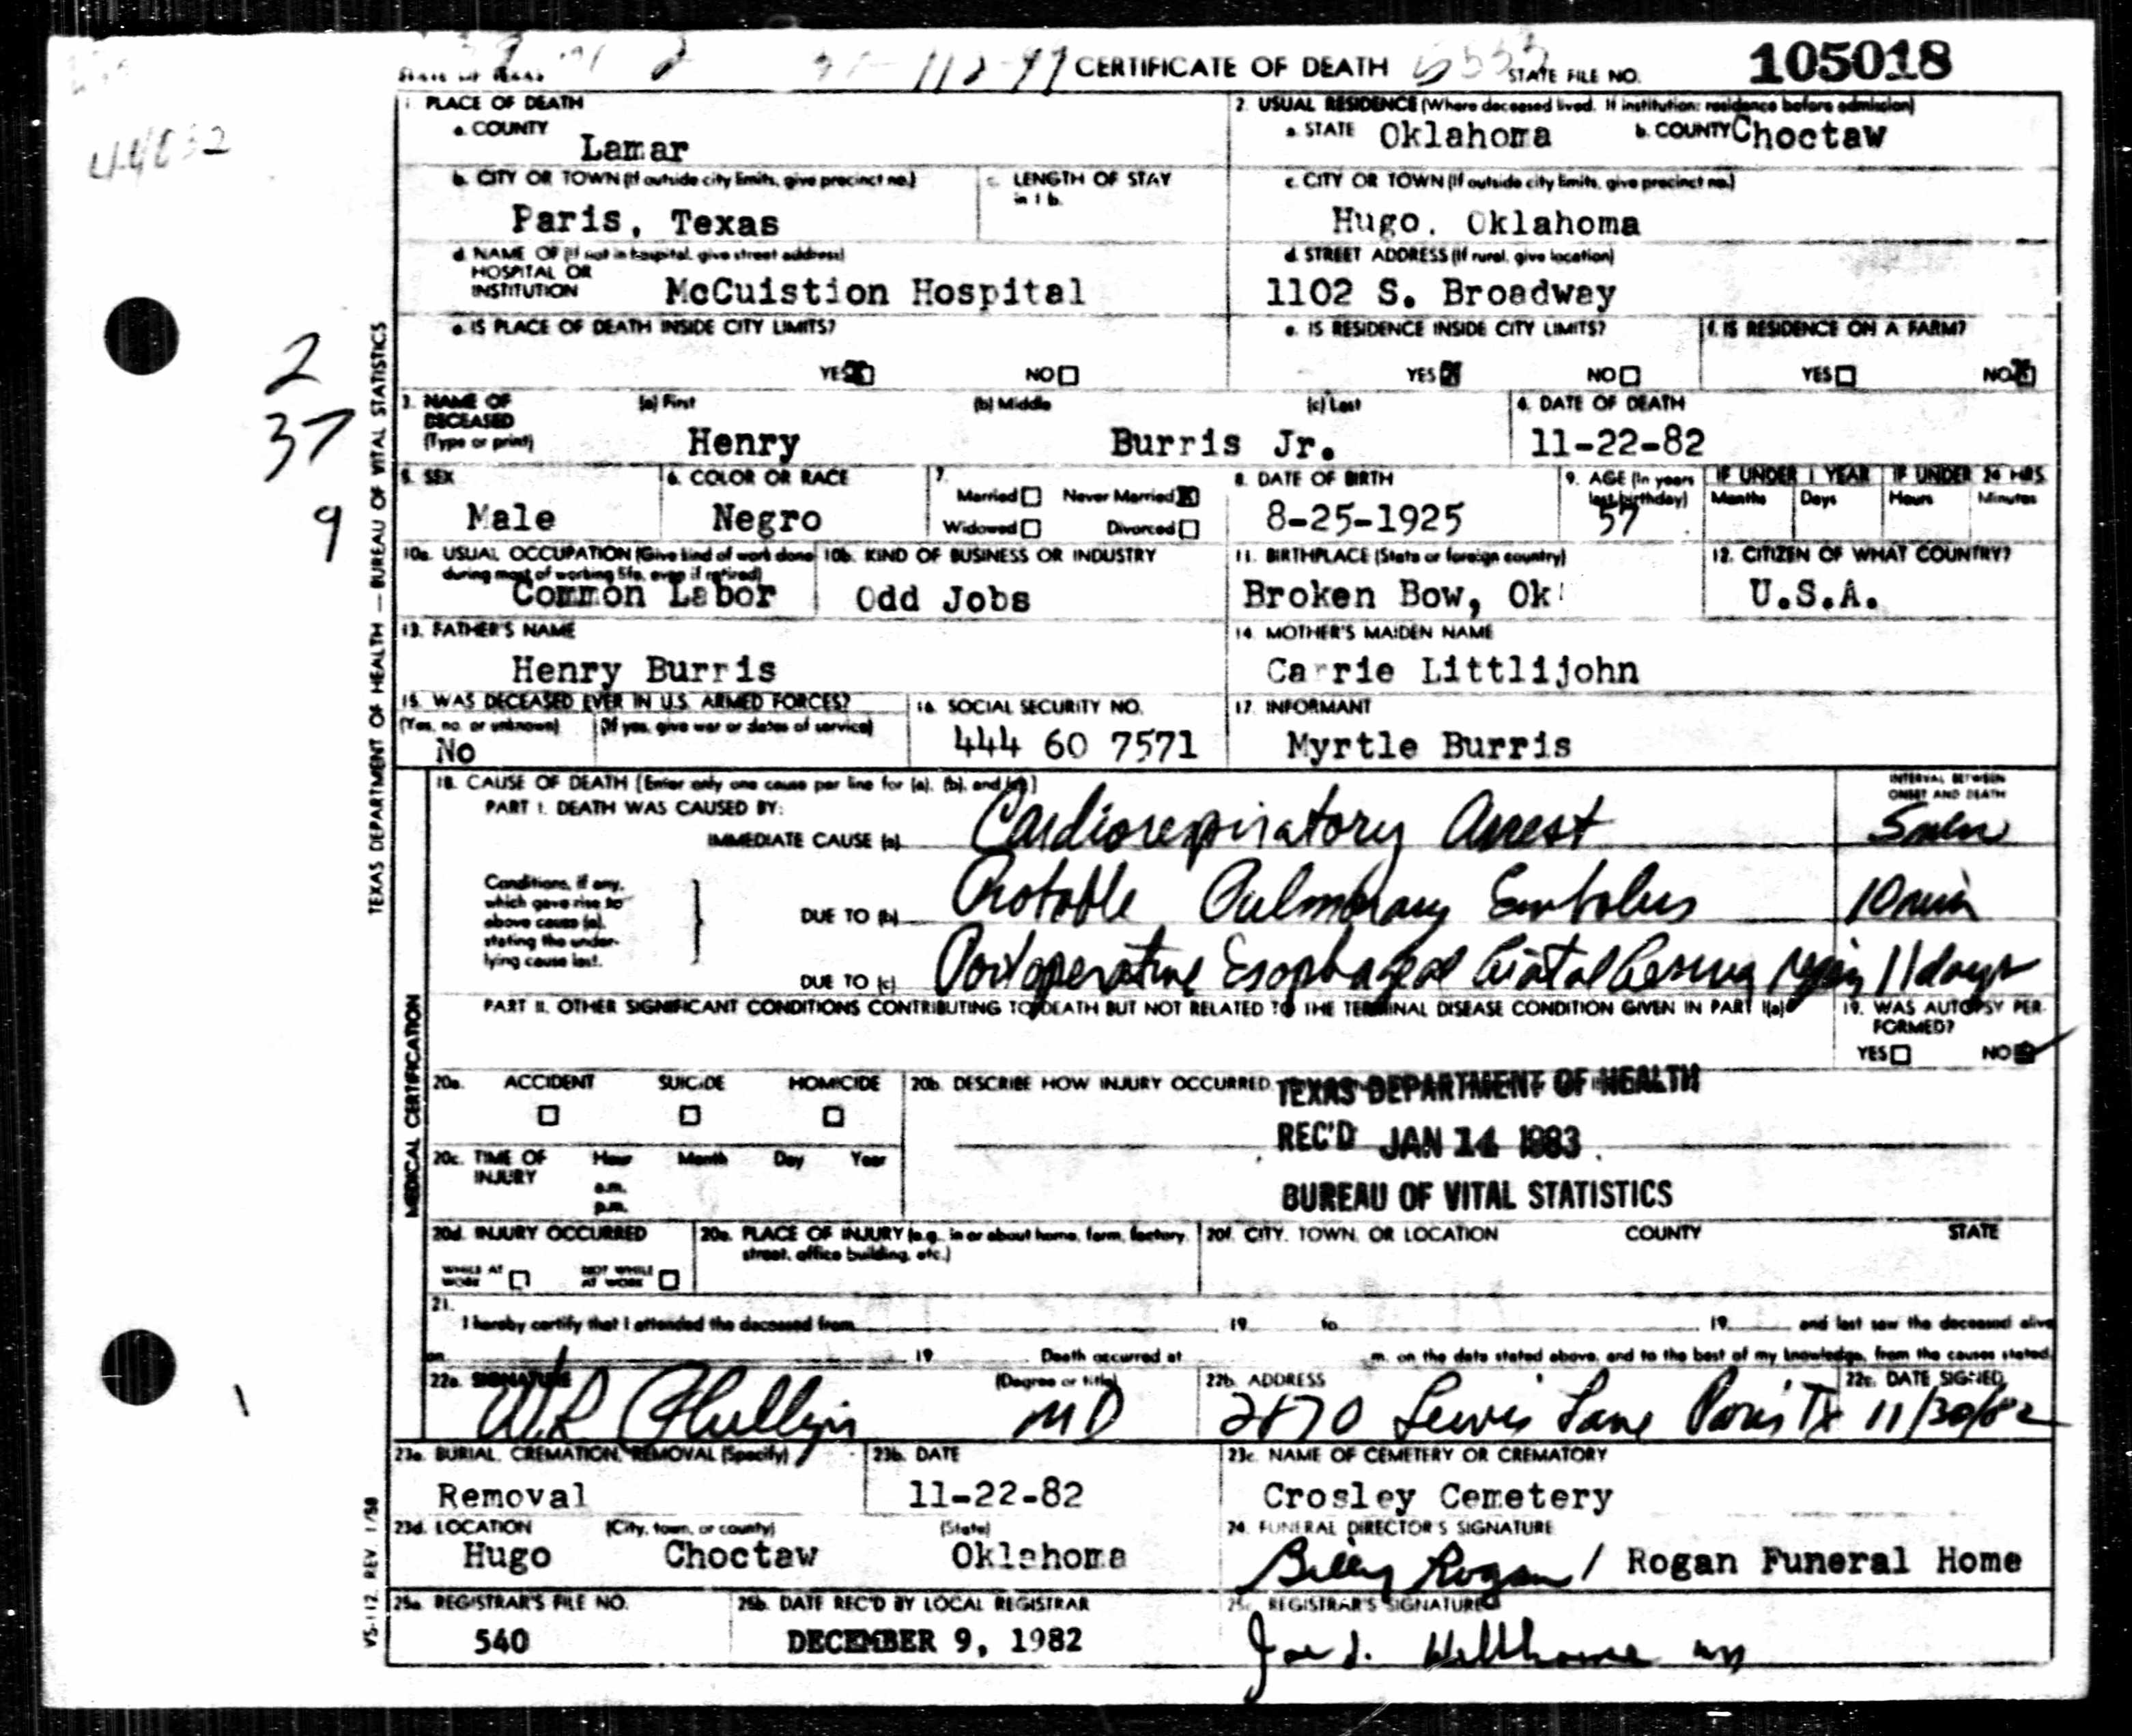 STATE OF TEXAS CERTIFICATE OF DEATH STATE FILE NO. 105018
1. PLACE OF DEATH
a. COUNTY
Lamar
2. USUAL RESIDENCE (Where deceased lived. If institution: residence before admission)
a. STATE Oklahoma b. COUNTY Choctaw
44032
b. CITY OR TOWN (If outside city limits, give precinct no.)
Paris, Texas
c. LENGTH OF STAY
in 1 b.
c. CITY OR TOWN (If outside city limits, give precinct no.)
Hugo, Oklahoma
d. NAME OF (If not in hospital, give street address)
HOSPITAL OR
INSTITUTION McCuistion Hospital
d. STREET ADDRESS (If rural, give location)
1102 S. Broadway
e. IS PLACE OF DEATH INSIDE CITY LIMITS?
YES NO
e. IS RESIDENCE INSIDE CITY LIMITS?
YES NO
f. IS RESIDENCE ON A FARM?
YES NO
2
37
9
TEXAS DEPARTMENT OF HEALTH — BUREAU OF VITAL STATISTICS
3. NAME OF
DECEASED
(Type or print)
(a) First (b) Middle (c) Last
Henry Burris Jr.
4. DATE OF DEATH
11-22-82
5. SEX
Male
6. COLOR OR RACE
Negro
7.
Married Never Married
Widowed Divorced
8. DATE OF BIRTH
8-25-1925
9. AGE (In years
last birthday)
57
IF UNDER 1 YEAR IF UNDER 24 HRS.
Months Days Hours Minutes
10a. USUAL OCCUPATION (Give kind of work done
during most of working life, even if retired)
Common Labor
10b. KIND OF BUSINESS OR INDUSTRY
Odd Jobs
11. BIRTHPLACE (State or foreign country)
Broken Bow, Ok
12. CITIZEN OF WHAT COUNTRY?
U.S.A.
13. FATHER'S NAME
Henry Burris
14. MOTHER'S MAIDEN NAME
Carrie Littlijohn
15. WAS DECEASED EVER IN U.S. ARMED FORCES?
(Yes, no, or unknown) (If yes, give war or dates of service)
No
16. SOCIAL SECURITY NO.
444 60 7571
17. INFORMANT
Myrtle Burris
MEDICAL CERTIFICATION
18. CAUSE OF DEATH [Enter only one cause per line for (a), (b), and (c)]
PART I. DEATH WAS CAUSED BY:
INTERVAL BETWEEN
ONSET AND DEATH
IMMEDIATE CAUSE (a) Cardiorespiratory Arrest 5 min
Conditions, if any,
which gave rise to
above cause (a),
stating the under-
lying cause last.
DUE TO (b) Probable Pulmonary Embolus 10 min
DUE TO (c) Postoperative Esophageal hiatal hernia repair 11 days
PART II. OTHER SIGNIFICANT CONDITIONS CONTRIBUTING TO DEATH BUT NOT RELATED TO THE TERMINAL DISEASE CONDITION GIVEN IN PART I(a)
19. WAS AUTOPSY PER-
FORMED?
YES NO
20a. ACCIDENT SUICIDE HOMICIDE
20b. DESCRIBE HOW INJURY OCCURRED
TEXAS DEPARTMENT OF HEALTH
REC'D JAN 14 1983
BUREAU OF VITAL STATISTICS
20c. TIME OF
INJURY
Hour Month Day Year
a.m.
p.m.
20d. INJURY OCCURRED
WHILE AT
WORK
NOT WHILE
AT WORK
20e. PLACE OF INJURY (e.g., in or about home, farm, factory,
street, office building, etc.)
20f. CITY, TOWN, OR LOCATION COUNTY STATE
21.
I hereby certify that I attended the deceased from 19 to 19 and last saw the deceased alive
on 19 Death occurred at m. on the date stated above, and to the best of my knowledge, from the causes stated.
22a. SIGNATURE (Degree or title)
MD
22b. ADDRESS
2870 Lewis Lane Paris Tx
22c. DATE SIGNED
11/30/82
23a. BURIAL, CREMATION, REMOVAL (Specify)
Removal
23b. DATE
11-22-82
23c. NAME OF CEMETERY OR CREMATORY
Crosley Cemetery
23d. LOCATION (City, town, or county) (State)
Hugo Choctaw Oklahoma
24. FUNERAL DIRECTOR'S SIGNATURE
Billy Rogan / Rogan Funeral Home
25a. REGISTRAR'S FILE NO.
540
25b. DATE REC'D BY LOCAL REGISTRAR
DECEMBER 9, 1982
25c. REGISTRAR'S SIGNATURE
VS-112 REV. 1/58